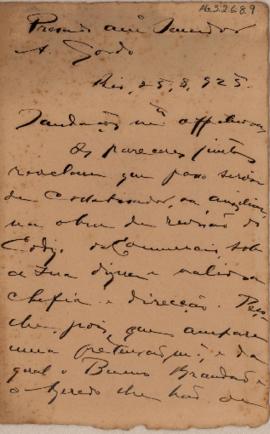 Presado am.º Senador
A. Gordo
Rio, 25, 8, 925.
Saudações mto affectuosas
Os pareceres juntos
revelam que posso servir
de collaborador, ou auxiliar,
na obra de revisão do
Codigo Commercial, sob
a sua digna e valiosa
chefia e direcção. Peço
lhe, pois, que ampare
uma pretenção mª, e da
qual o Bueno Brandão e
o lhe hão de